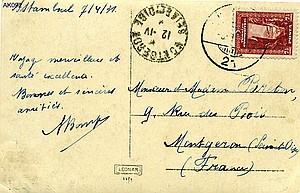 AK091
Istamboul 7/4/31
Voyage merveilleux et
santé excellente.
Bonnes et sincères
amitiés.
12 - IV
Monsieur et Madame Breton
9, Rue des Bois
Montgeron (Seine et Oise)
(France)
21
LEONAR